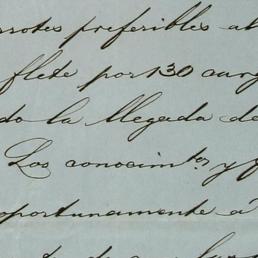 rrotes preferibles al
flete por 130 carg
do la llegada de
Los conocimtos y f
oportunamente á